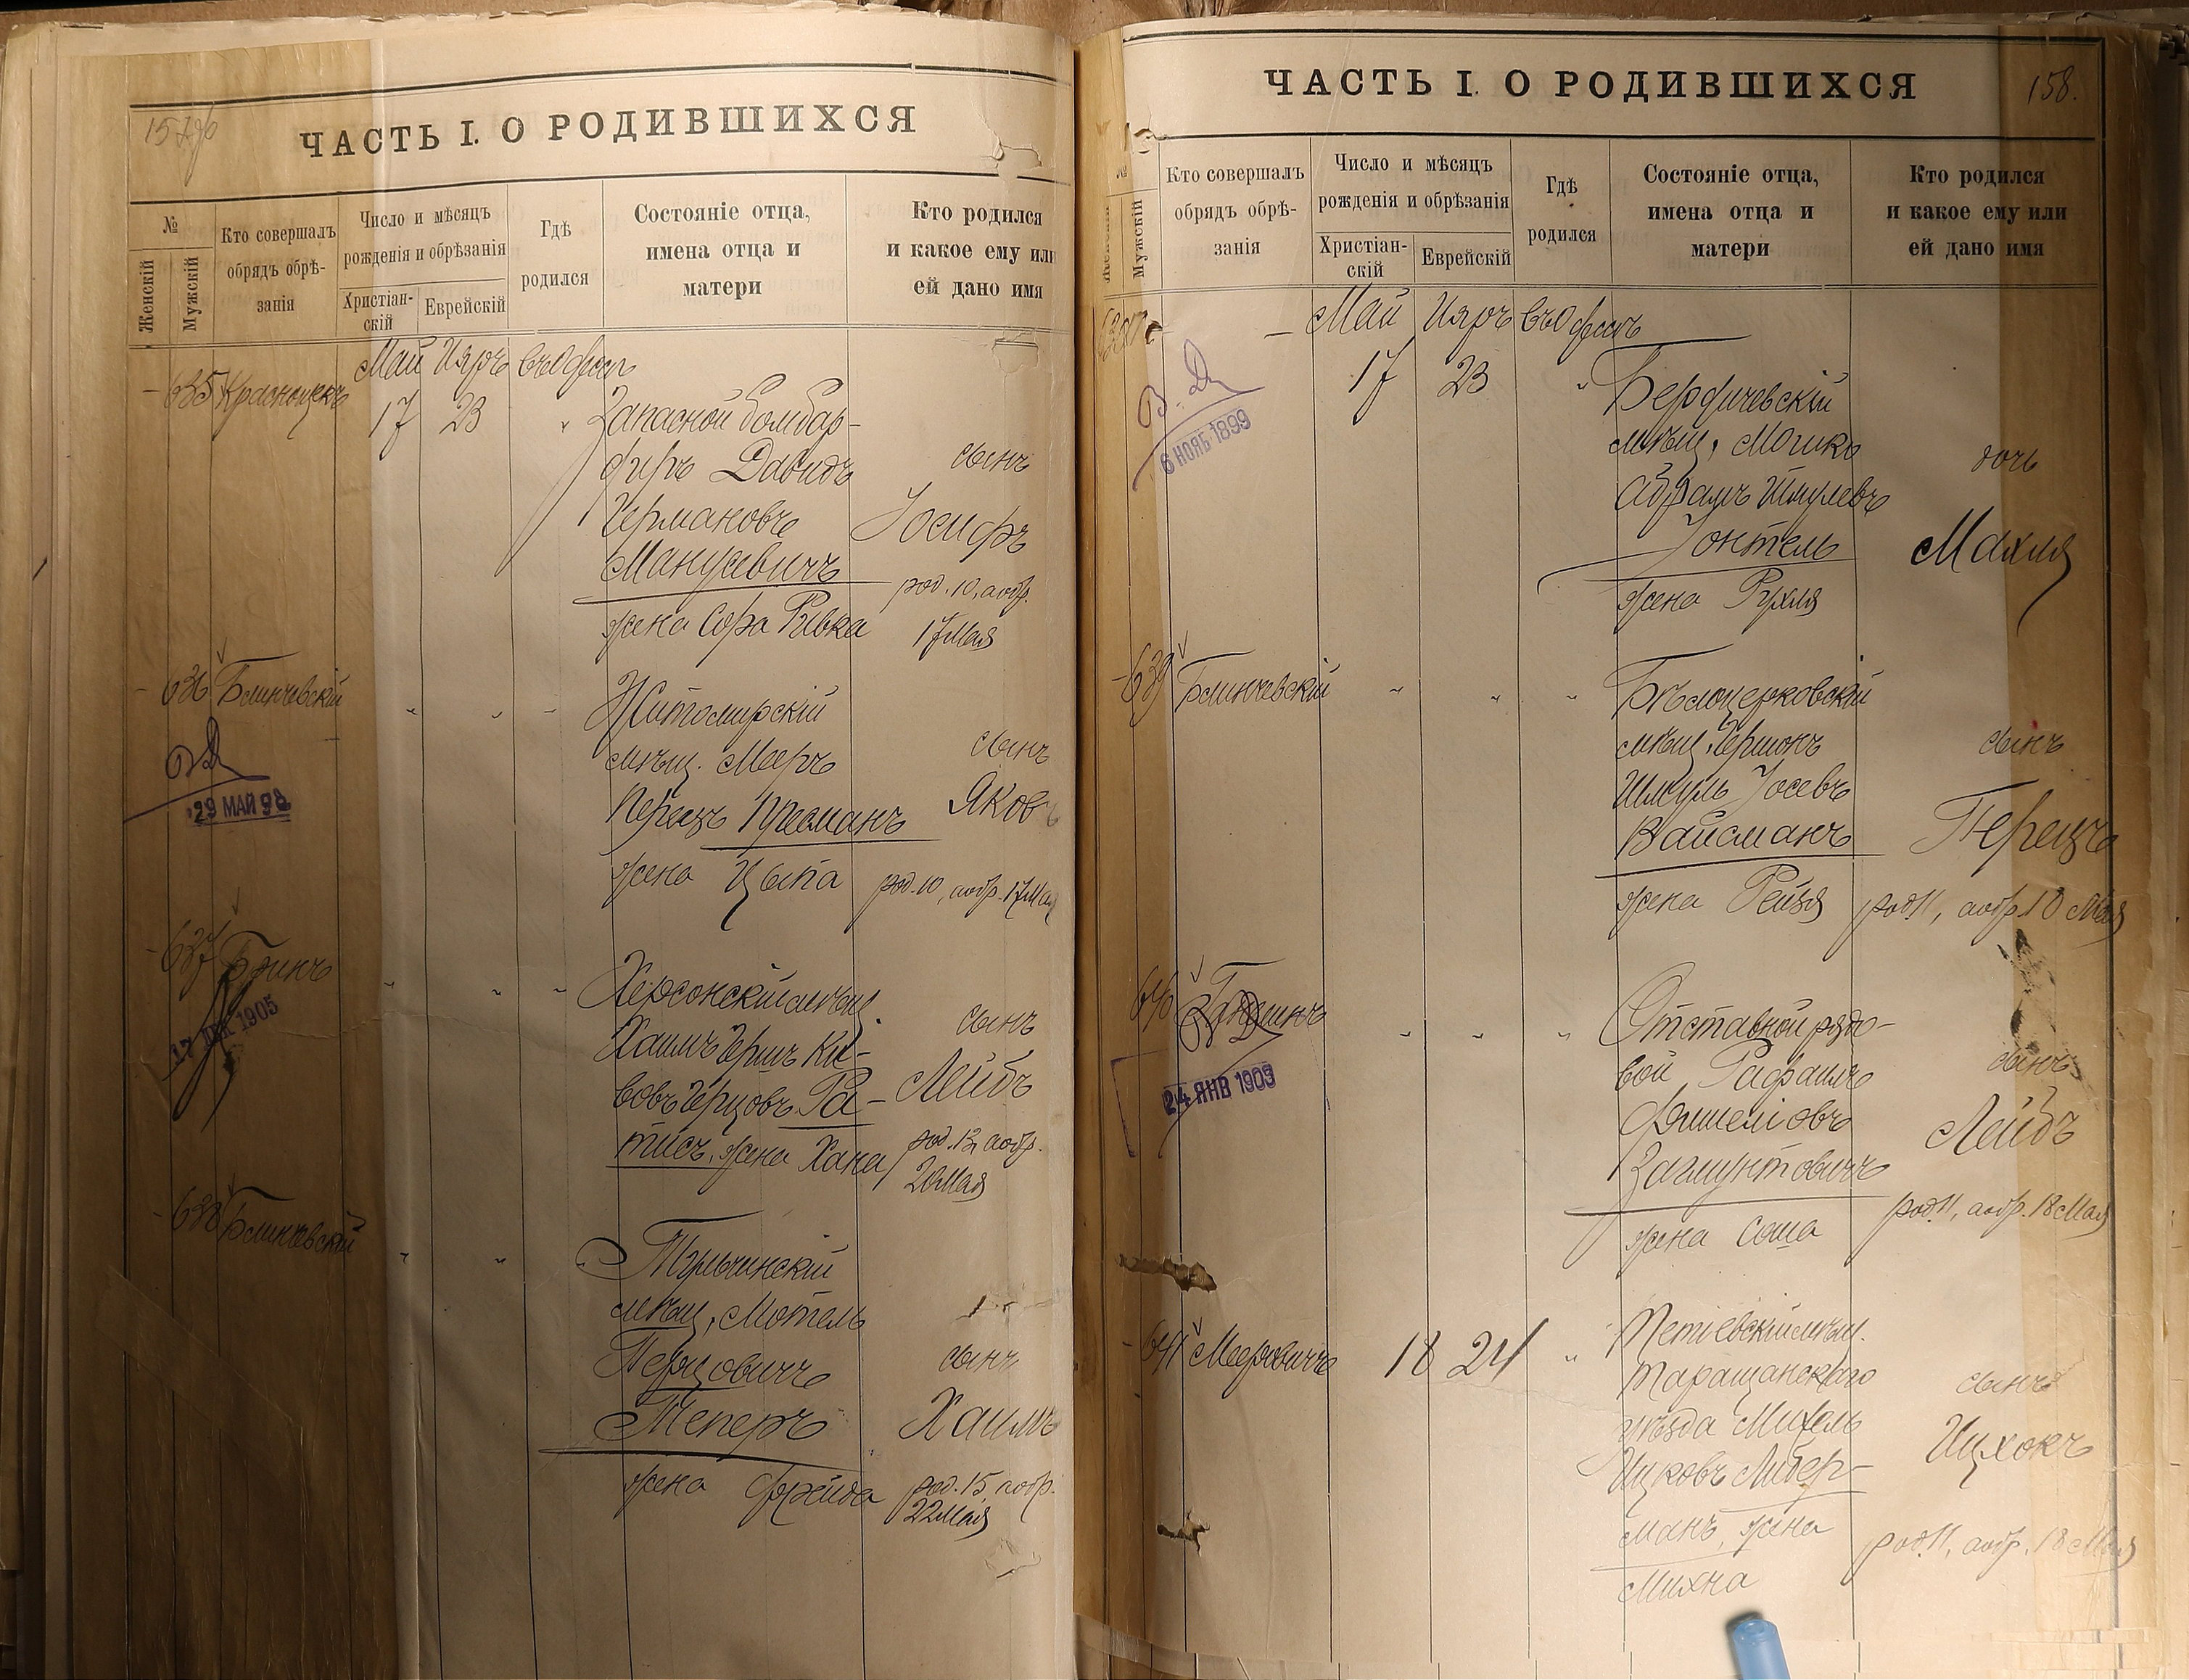 157об
ЧАСТЬ I. О РОДИВШИХСЯ
№
Женскій
Мужскій
Кто совершалъ
обрядъ обрѣ-
занія
Число и мѣсяцъ
рожденія и обрѣзанія
Христіан-
скій
Еврейскій
Гдѣ
родился
Состояніе отца,
имена отца и
матери
Кто родился
и какое ему или
ей дано имя
Май Ияръ въ Одессѣ
635
17 23 Запасной бомбар-
диръ Давидъ
Германовъ
Манусевичъ
жена Сора Ривка
сынъ
Іосифъ
род. 10, а обр.
17 Мая
636 Блинчевскій
29 МАЙ 98
Житомирскій
мѣщ. Мееръ
Перецъ Пресманъ
жена Цыпа
сынъ
Яковъ
род. 10, а обр. 17 Мая
637
1905
Херсонскій мѣщ.
Хаимъ Гершъ Ки-
вовъ Герцовъ Ра-
тисъ, жена Хана
сынъ
Лейбъ
род. 13, а обр.
20 Мая
638 Блинчевскій
Тульчинскій
мѣщ. Мотель
Перцовичъ
Теперъ
жена Фрейда
сынъ
Хаимъ
род. 15, а обр.
22 Мая
158.
ЧАСТЬ I. О РОДИВШИХСЯ
№
Женскій
Мужскій
Кто совершалъ
обрядъ обрѣ-
занія
Число и мѣсяцъ
рожденія и обрѣзанія
Христіан-
скій
Еврейскій
Гдѣ
родился
Состояніе отца,
имена отца и
матери
Кто родился
и какое ему или
ей дано имя
Май Ияръ въ Одессѣ
6 НОЯБ 1899
17 23 Бердичевскій
мѣщ. Мошко
Абрамъ Шмулевъ
Іонтель
жена Рухля
дочь
Махля
639 Блинчевскій
Бѣлоцерковскій
мѣщ. Гершонъ
Шмуль Іосевъ
Вайсманъ
жена Рейзя
сынъ
Перецъ
род. 11, а обр. 18 Мая
640
24 ЯНВ 1909
Отставной рядо-
вой Рафаилъ
Фишелiовъ
Загмунтовичъ
жена Соша
сынъ
Лейбъ
род. 11, а обр. 18 Мая
641 Мееровичъ
18 24
Тетіевскій мѣщ.
Таращанскаго
уѣзда Михель
Ицковъ Либер-
манъ, жена
Михна
сынъ
Ицхокъ
род. 11, а обр. 18 Мая